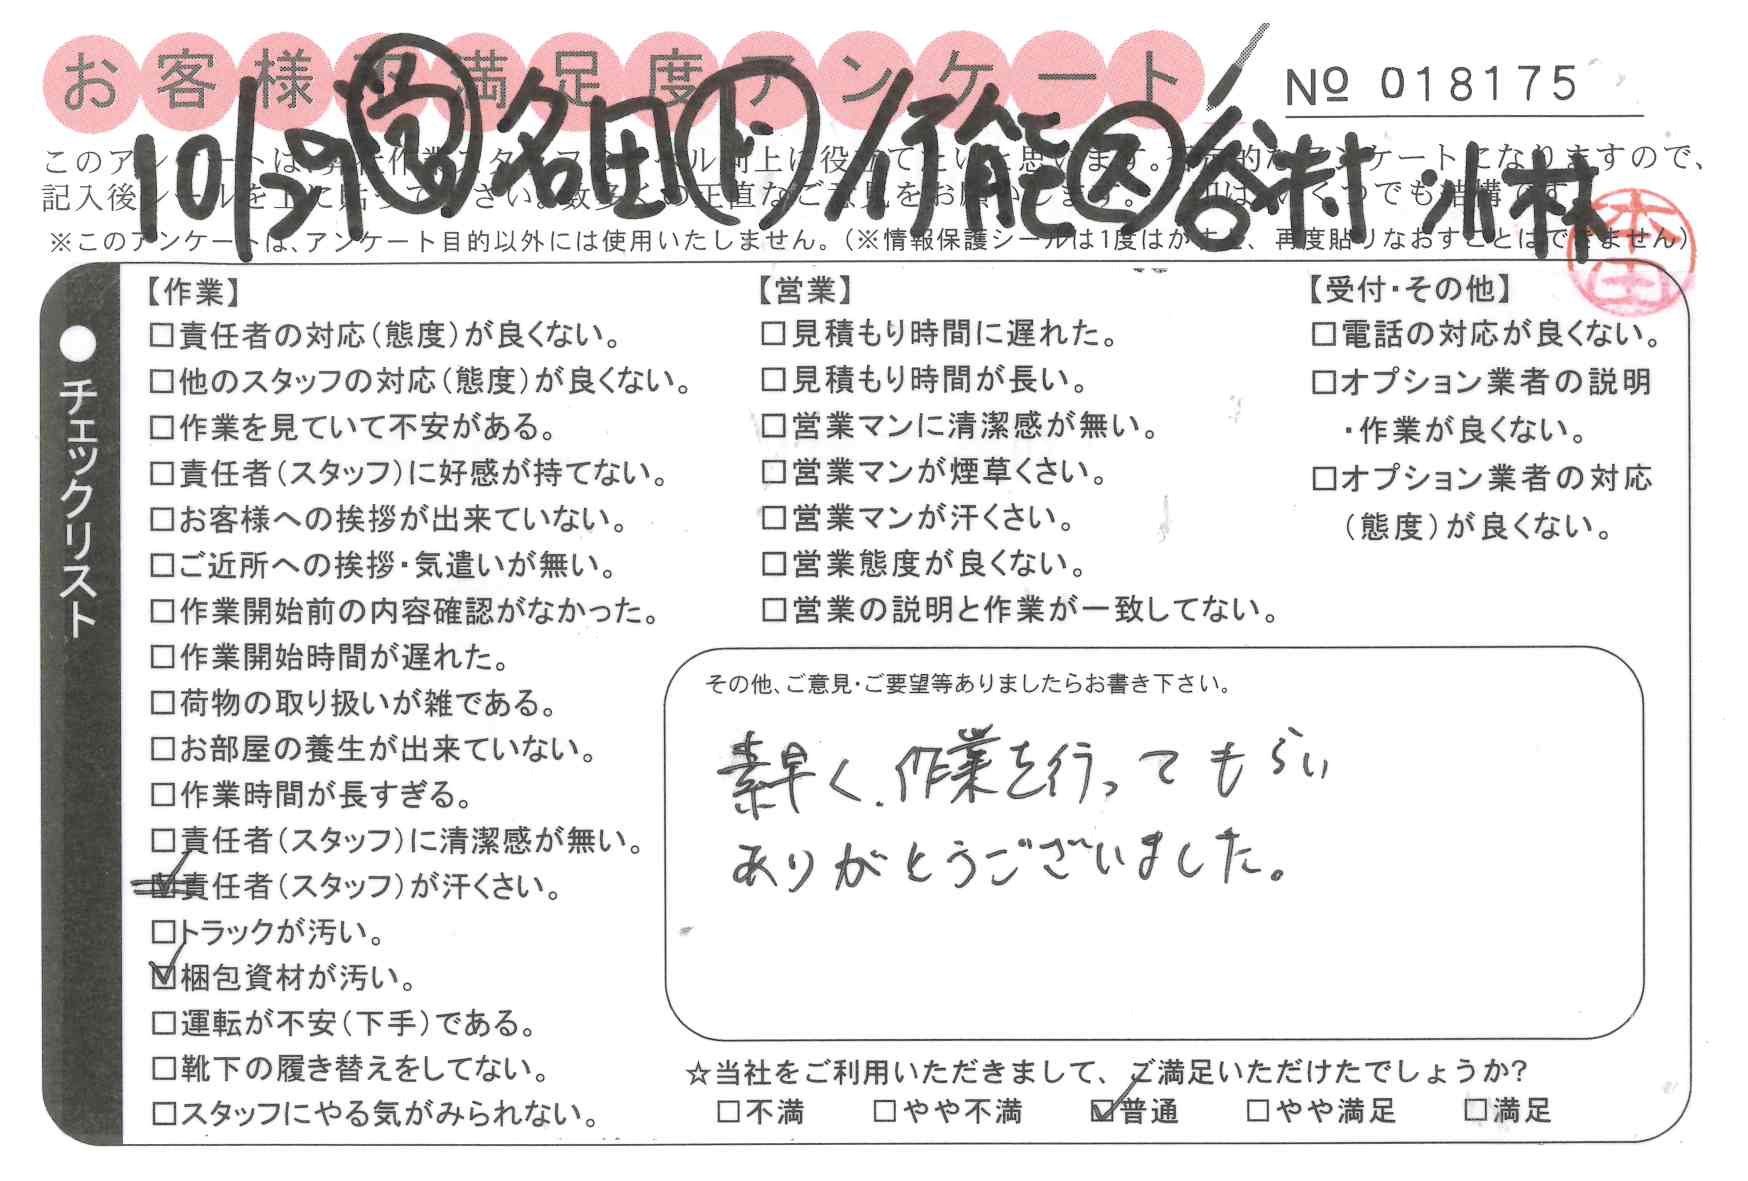 お客様 満足度アンケート
No 018175
10/29 営 名田 ド 行能 ス 谷村・小林
※このアンケートは、アンケート目的以外には使用いたしません。（※情報保護シールは1度はがすと、再度貼りなおすことはできません）
チェックリスト
【作業】
□責任者の対応（態度）が良くない。
□他のスタッフの対応（態度）が良くない。
□作業を見ていて不安がある。
□責任者（スタッフ）に好感が持てない。
□お客様への挨拶が出来ていない。
□ご近所への挨拶・気遣いが無い。
□作業開始前の内容確認がなかった。
□作業開始時間が遅れた。
□荷物の取り扱いが雑である。
□お部屋の養生が出来ていない。
□作業時間が長すぎる。
□責任者（スタッフ）に清潔感が無い。
☑責任者（スタッフ）が汗くさい。
□トラックが汚い。
☑梱包資材が汚い。
□運転が不安（下手）である。
□靴下の履き替えをしてない。
□スタッフにやる気がみられない。
【営業】
□見積もり時間に遅れた。
□見積もり時間が長い。
□営業マンに清潔感が無い。
□営業マンが煙草くさい。
□営業マンが汗くさい。
□営業態度が良くない。
□営業の説明と作業が一致してない。
【受付・その他】
□電話の対応が良くない。
□オプション業者の説明
・作業が良くない。
□オプション業者の対応
（態度）が良くない。
その他、ご意見・ご要望等ありましたらお書き下さい。
素早く、作業を行ってもらい
ありがとうございました。
☆当社をご利用いただきまして、ご満足いただけたでしょうか?
□不満 □やや不満 ☑普通 □やや満足 □満足